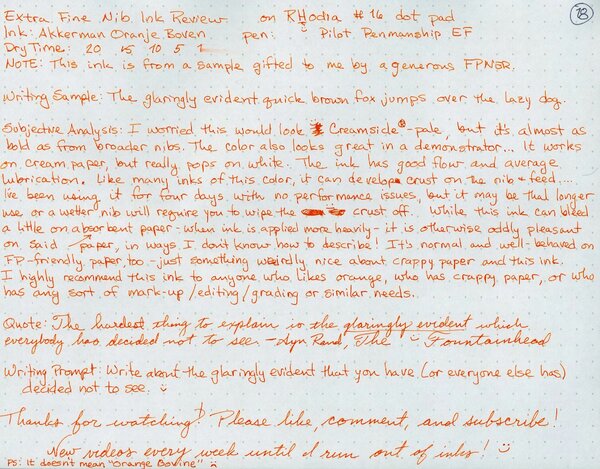 Extra Fine Nib Ink Review on RHodia #16 dot pad 78
Ink: Akkerman Oranje Boven pen: Pilot Penmanship EF
Dry Time: 20 15 10 5 1
NOTE: This ink is from a sample gifted to me by a generous FPNSR.
Writing Sample: The glaringly evident quick brown fox jumps over the lazy dog.
Subjective Analysis: I worried this would look Creamsicle®-pale, but it's almost as
bold as from broader nibs. The color also looks great in a demonstrator... It works
on cream paper, but really pops on white. The ink has good flow and average
lubrication. Like many inks of this color, it can develop crust on the nib + feed.....
I've been using it for four days with no performance issues, but it may be that longer
use or a wetter nib will require you to wipe the crust off... While this ink can bleed
a little on absorbent paper - when ink is applied more heavily - it is otherwise oddly pleasant
on said paper, in ways I don't know how to describe! It's normal and well-behaved on
FP-friendly paper, too - just something weirdly nice about crappy paper and this ink.
I highly recommend this ink to anyone who likes orange, who has crappy paper, or who
has any sort of mark-up/editing/grading or similar needs.
Quote: The hardest thing to explain is the glaringly evident which
everybody has decided not to see. -Ayn Rand, The Fountainhead
Writing Prompt: Write about the glaringly evident that you have (or everyone else has)
decided not to see.
Thanks for watching! Please like, comment, and subscribe!
New videos every week until I run out of inks!
PS: It doesn't mean "Orange Bovine"